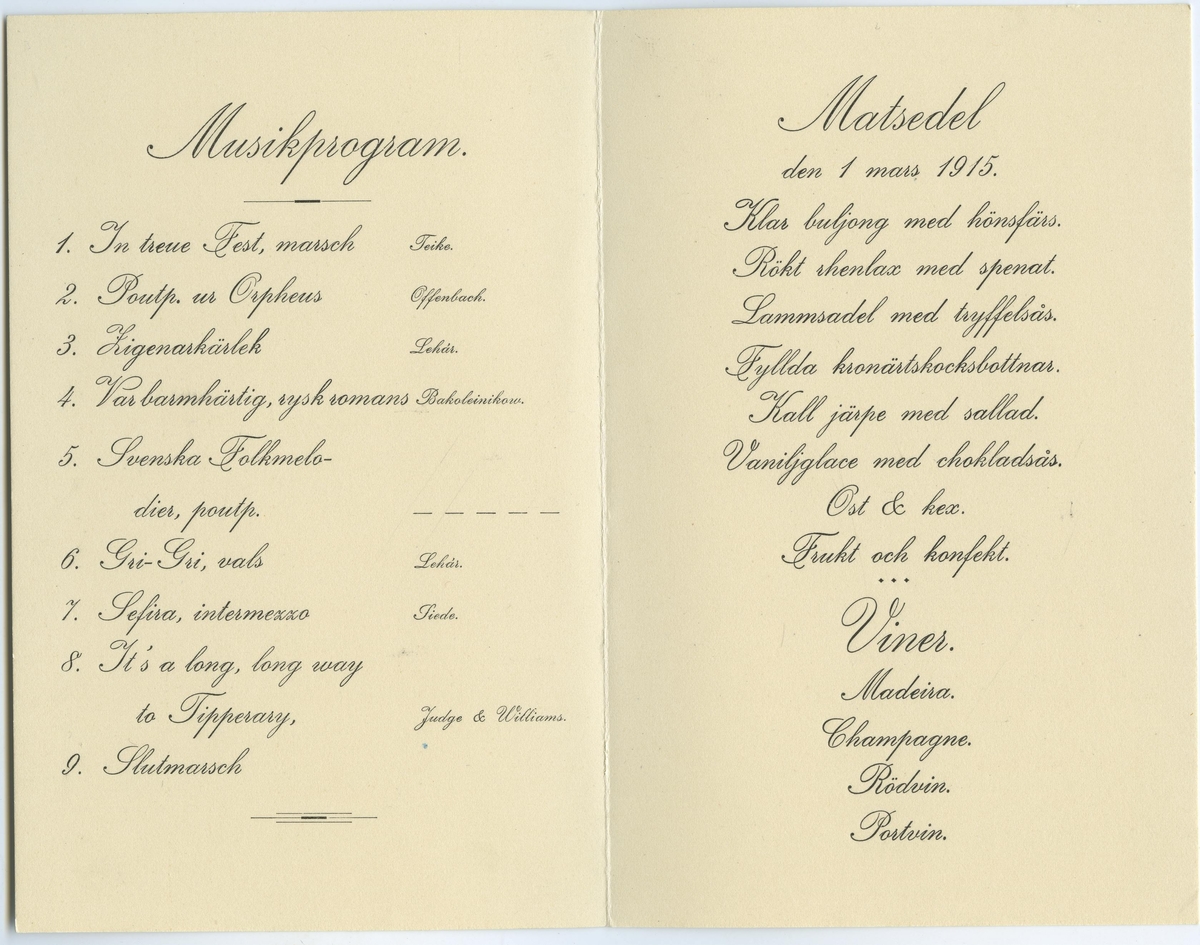 Musikprogram.
1. In treue Fest, marsch Teike.
2. Poutp. ur Orpheus Offenbach.
3. Zigenarkärlek Lehár.
4. Var barmhärtig, rysk romans Bakoleinikow.
5. Svenska Folkmelo-
dier, poutp. — — — — —
6. Gri-Gri, vals Lehár.
7. Sefira, intermezzo Siede.
8. It's a long, long way
to Tipperary, Judge & Williams.
9. Slutmarsch
Matsedel
den 1 mars 1915.
Klar buljong med hönsfärs.
Rökt rhenlax med spenat.
Lammsadel med tryffelsås.
Fyllda kronärtskocksbottnar.
Kall järpe med sallad.
Vaniljglace med chokladsås.
Ost & kex.
Frukt och konfekt.
Viner.
Madeira.
Champagne.
Rödvin.
Portvin.